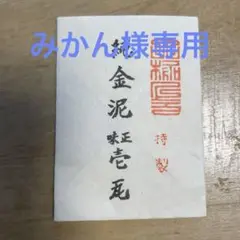 みかん様専用
純金泥
正味壱瓦
特製